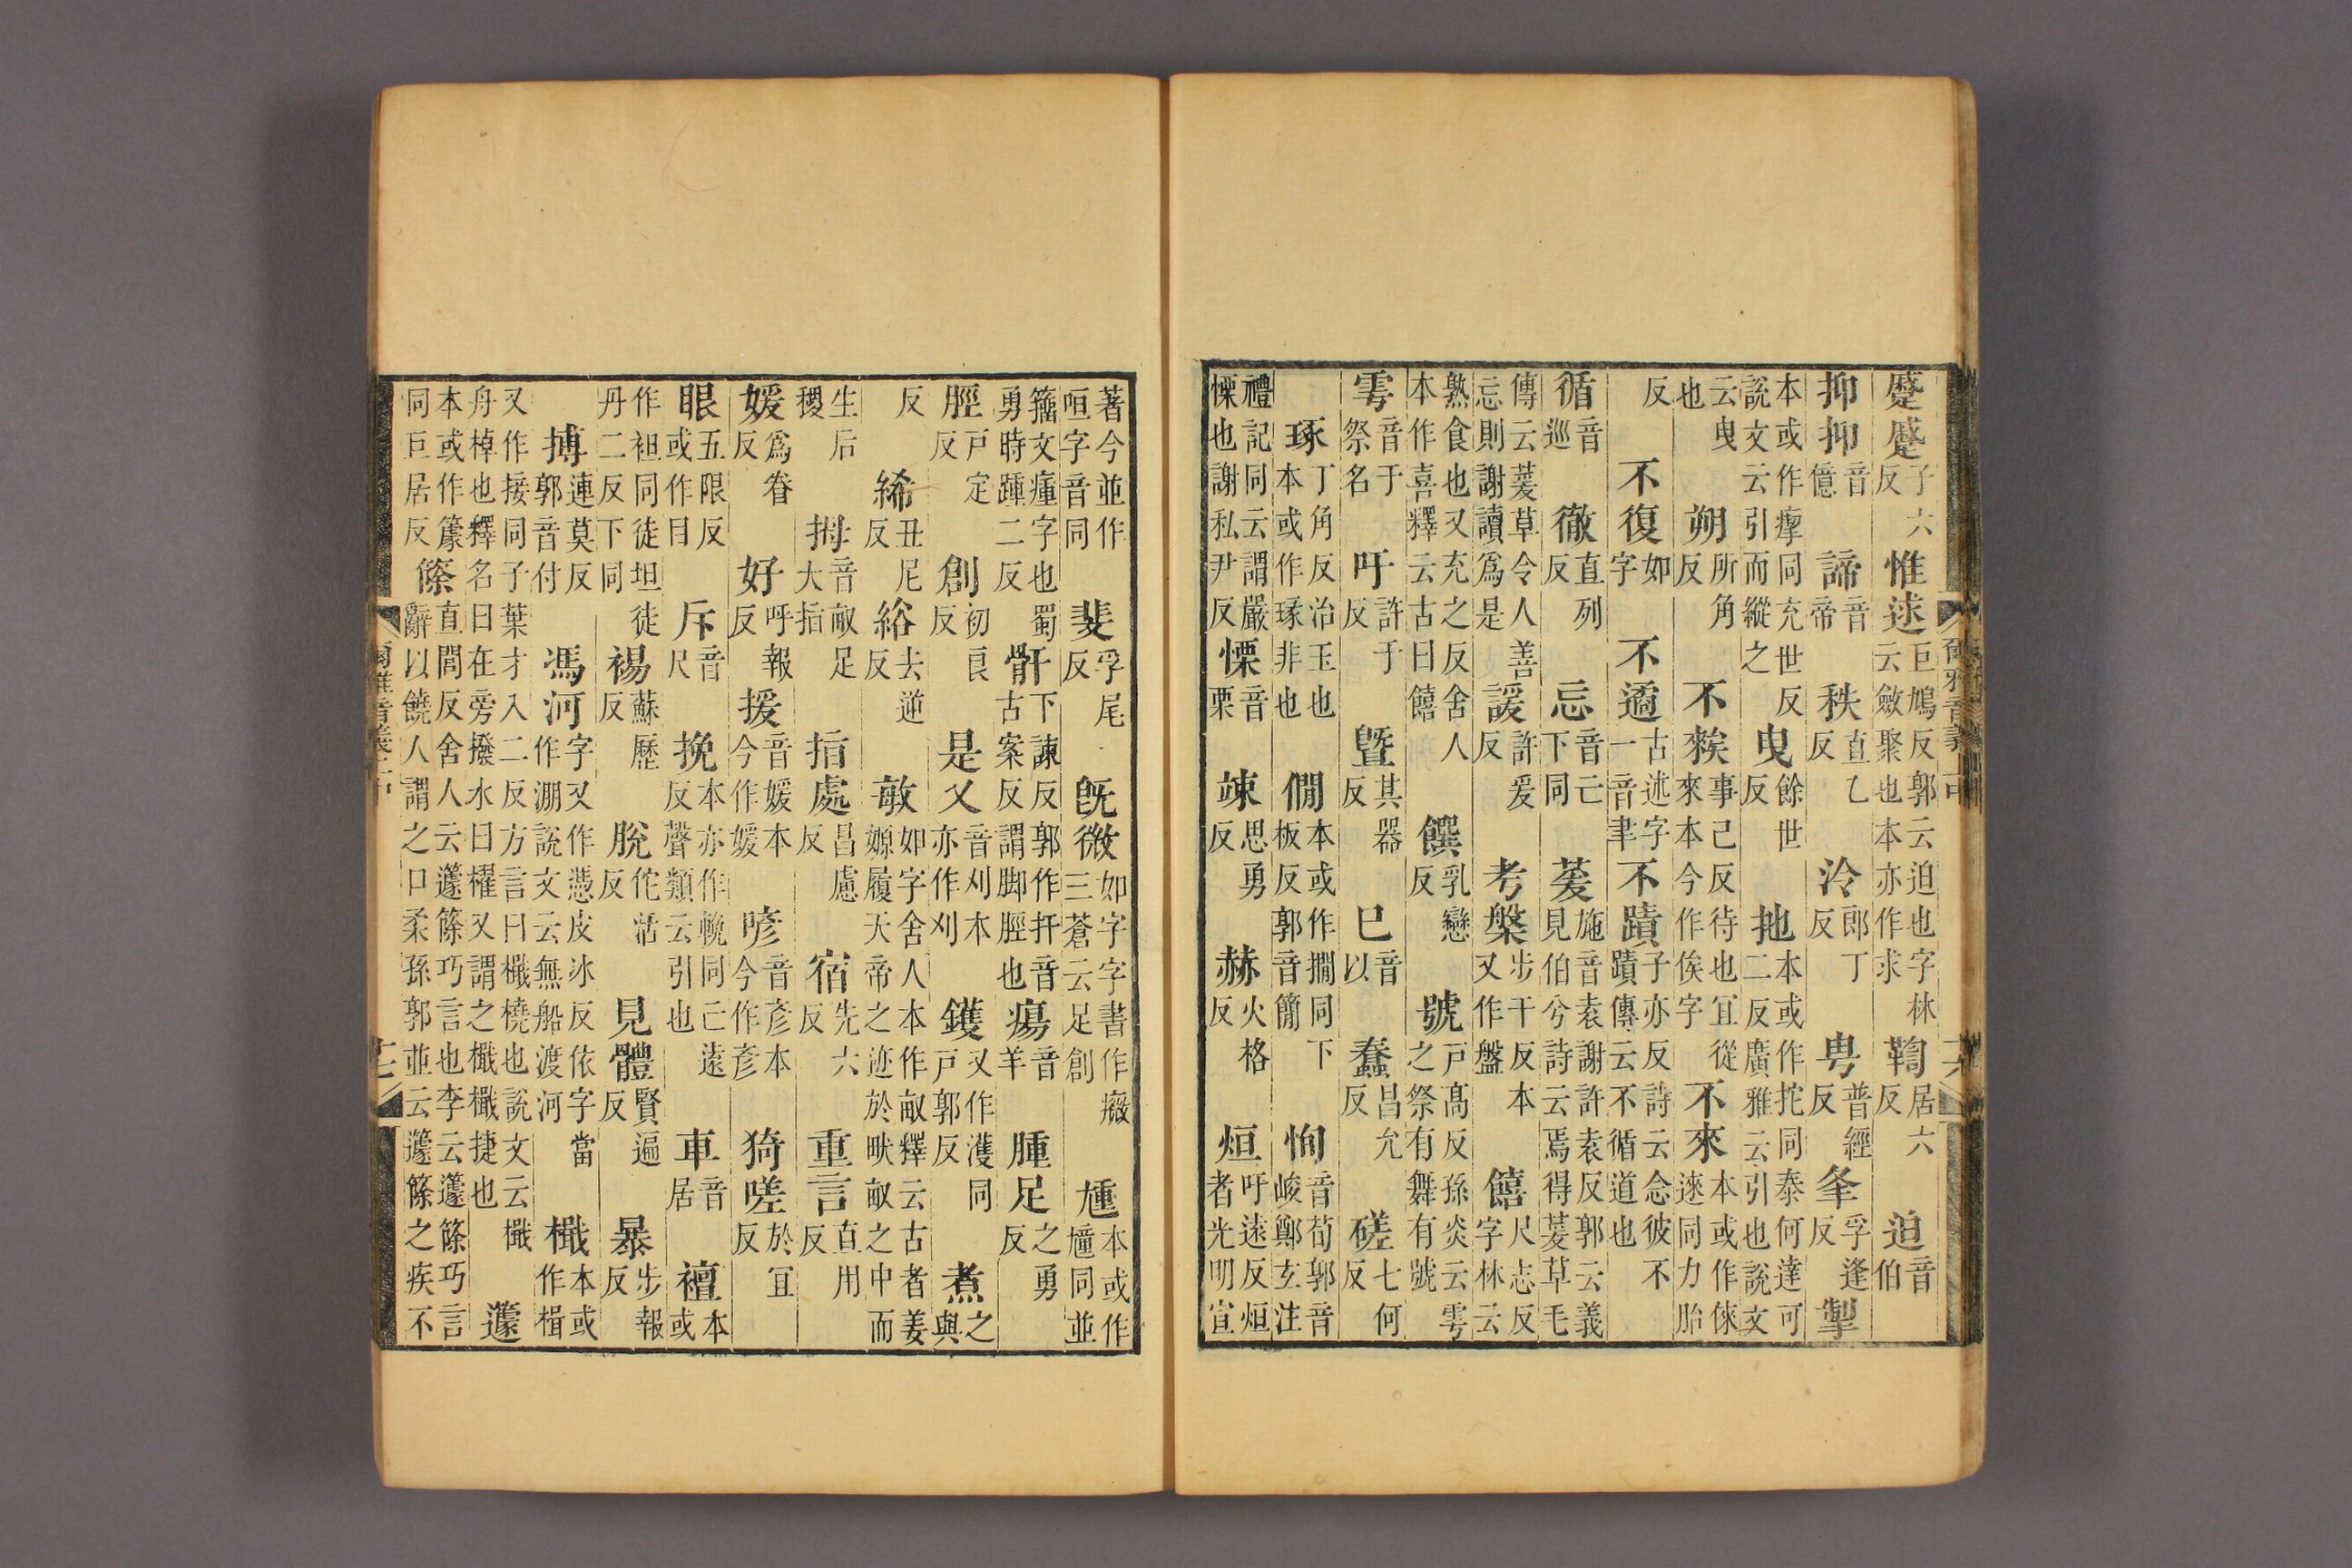 蹙蹙子六反惟逑巨鳩反郭云迫也字林云斂聚也本亦作求鞫居六反迫音伯
抑抑音億諦音帝秩直乙反泠郎丁反甹普經反夆孚逢反掣
本或作瘳同充世反說文云引而縱之曳餘世反拖本或作拕同泰何達可二反廣雅云引也說文
云曳也朔所角反不俟事己反待也宜從來本今作俟字不來本或作倈逨同力胎
反不復如字不遹古述字一音聿不蹟子亦反詩云念彼不蹟傳云不循道也
循音巡徹直列反忘音亡下同萲施音袁謝許袁反郭云義見伯兮詩云焉得萲草毛
傳云萲草令人善忘則謝讀爲是諼許爰反考槃步干反本又作盤饎尺志反字林云
熟食也又充之反舍人本作喜釋云古曰饎饌乳戀反號戶高反孫炎云雩之祭有舞有號
雩音于祭名吁許于反曁其器反巳音以蠢昌允反磋七何反
琢丁角反治玉也本或作琢非也僩本或作撊同下板反郭音簡恂音荀郭音峻鄭玄注
禮記同云謂嚴慄也謝私尹反慄音栗竦思勇反赫火格反烜吁遠反烜者光明宣
著今並作咺字音同斐孚尾反旣微如字字書作癓三蒼云足創尰本或作㣫同並
籀文瘇字也蜀勇時踵二反骭下諫反郭作扞音古案反謂脚脛也瘍音羊腫足之勇反
脛戶定反創初良反是乂音刈本亦作刈鑊又作濩同戶郭反煮之與
反絺丑尼反綌去逆反敏如字舍人本作畝釋云古者姜嫄履天帝之迹於畎畝之中而
生后稷拇音畝足大指指處昌慮反宿先六反重言直用反
媛爲眷反好呼報反援音媛本今作媛喭音彥本今作彥猗嗟於宜反
眼五限反或作目斥音尺挽本亦作輓同亡遠反聲類云引也車音居襢本或
作袒同徒坦徒丹二反下同裼蘇歷反脫佗活反見體賢遍反暴步報
反搏連莫反郭音付馮河字又作憑皮冰反依字當作淜說文云無船渡河檝本或作楫
又作接同子葉才入二反方言曰檝橈也說文云檝舟棹也釋名曰在旁撥水曰櫂又謂之檝檝捷也籧
本或作籧同巨居反篨直閭反舍人云籧篨巧言也李云籧篨巧言辭以饒人謂之口柔孫郭並云籧篨之疾不